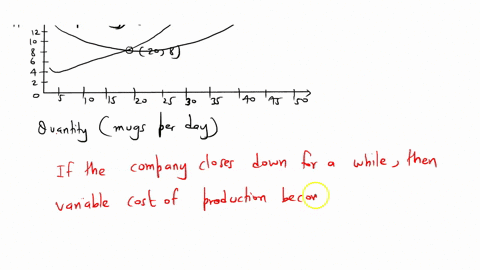 12
10
8
6
4
2
0
(20,8)
5 10 15 20 25 30 35 40 45 50
Quantity (mugs per day)
If the company closes down for a while, then
variable cost of production becom